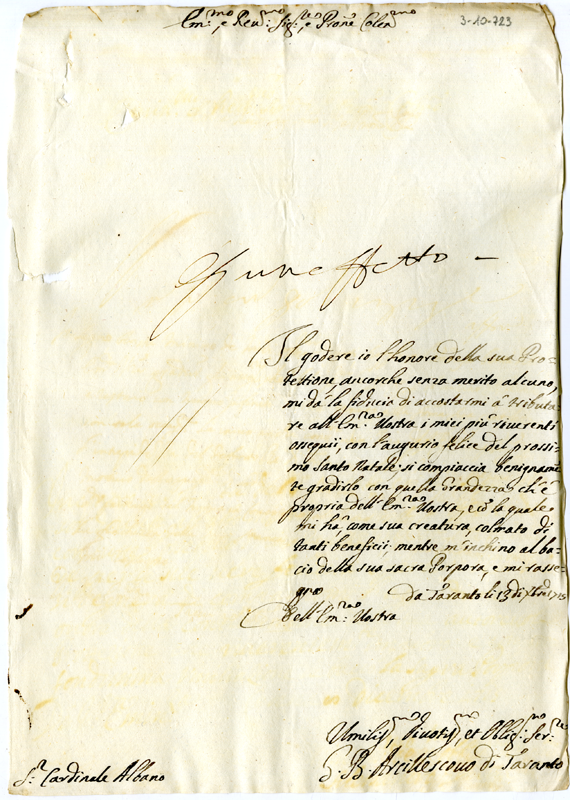 3-10-723
Em:mo e Reu:mo Sig:re e Prone Colen:mo
Il godere io l'honore della sua Pro=
tettione, ancorche senza merito alcuno,
mi dà la fiducia di accostarmi à tributa
re all'Em:za Vostra i miei più riuerenti
ossequii, con l'augurio felice del prossi=
mo Santo Natale; si compiaccia benigname
te gradirlo con quella Grandezza ch'è
propria dell'Em:za Vostra, e cõ la quale
mi hà come sua creatura, colmato di
tanti beneficii; mentre m'inchino al ba=
cio della sua sacra Porpora, e mi rasse=
gno
da Taranto li 13 di Xbre
Dell'Em:za Vostra
Umiliss:mo Diuotiss:mo et Obblig:mo Ser:re
Arciuescouo di Taranto
S:r Cardinale Albano